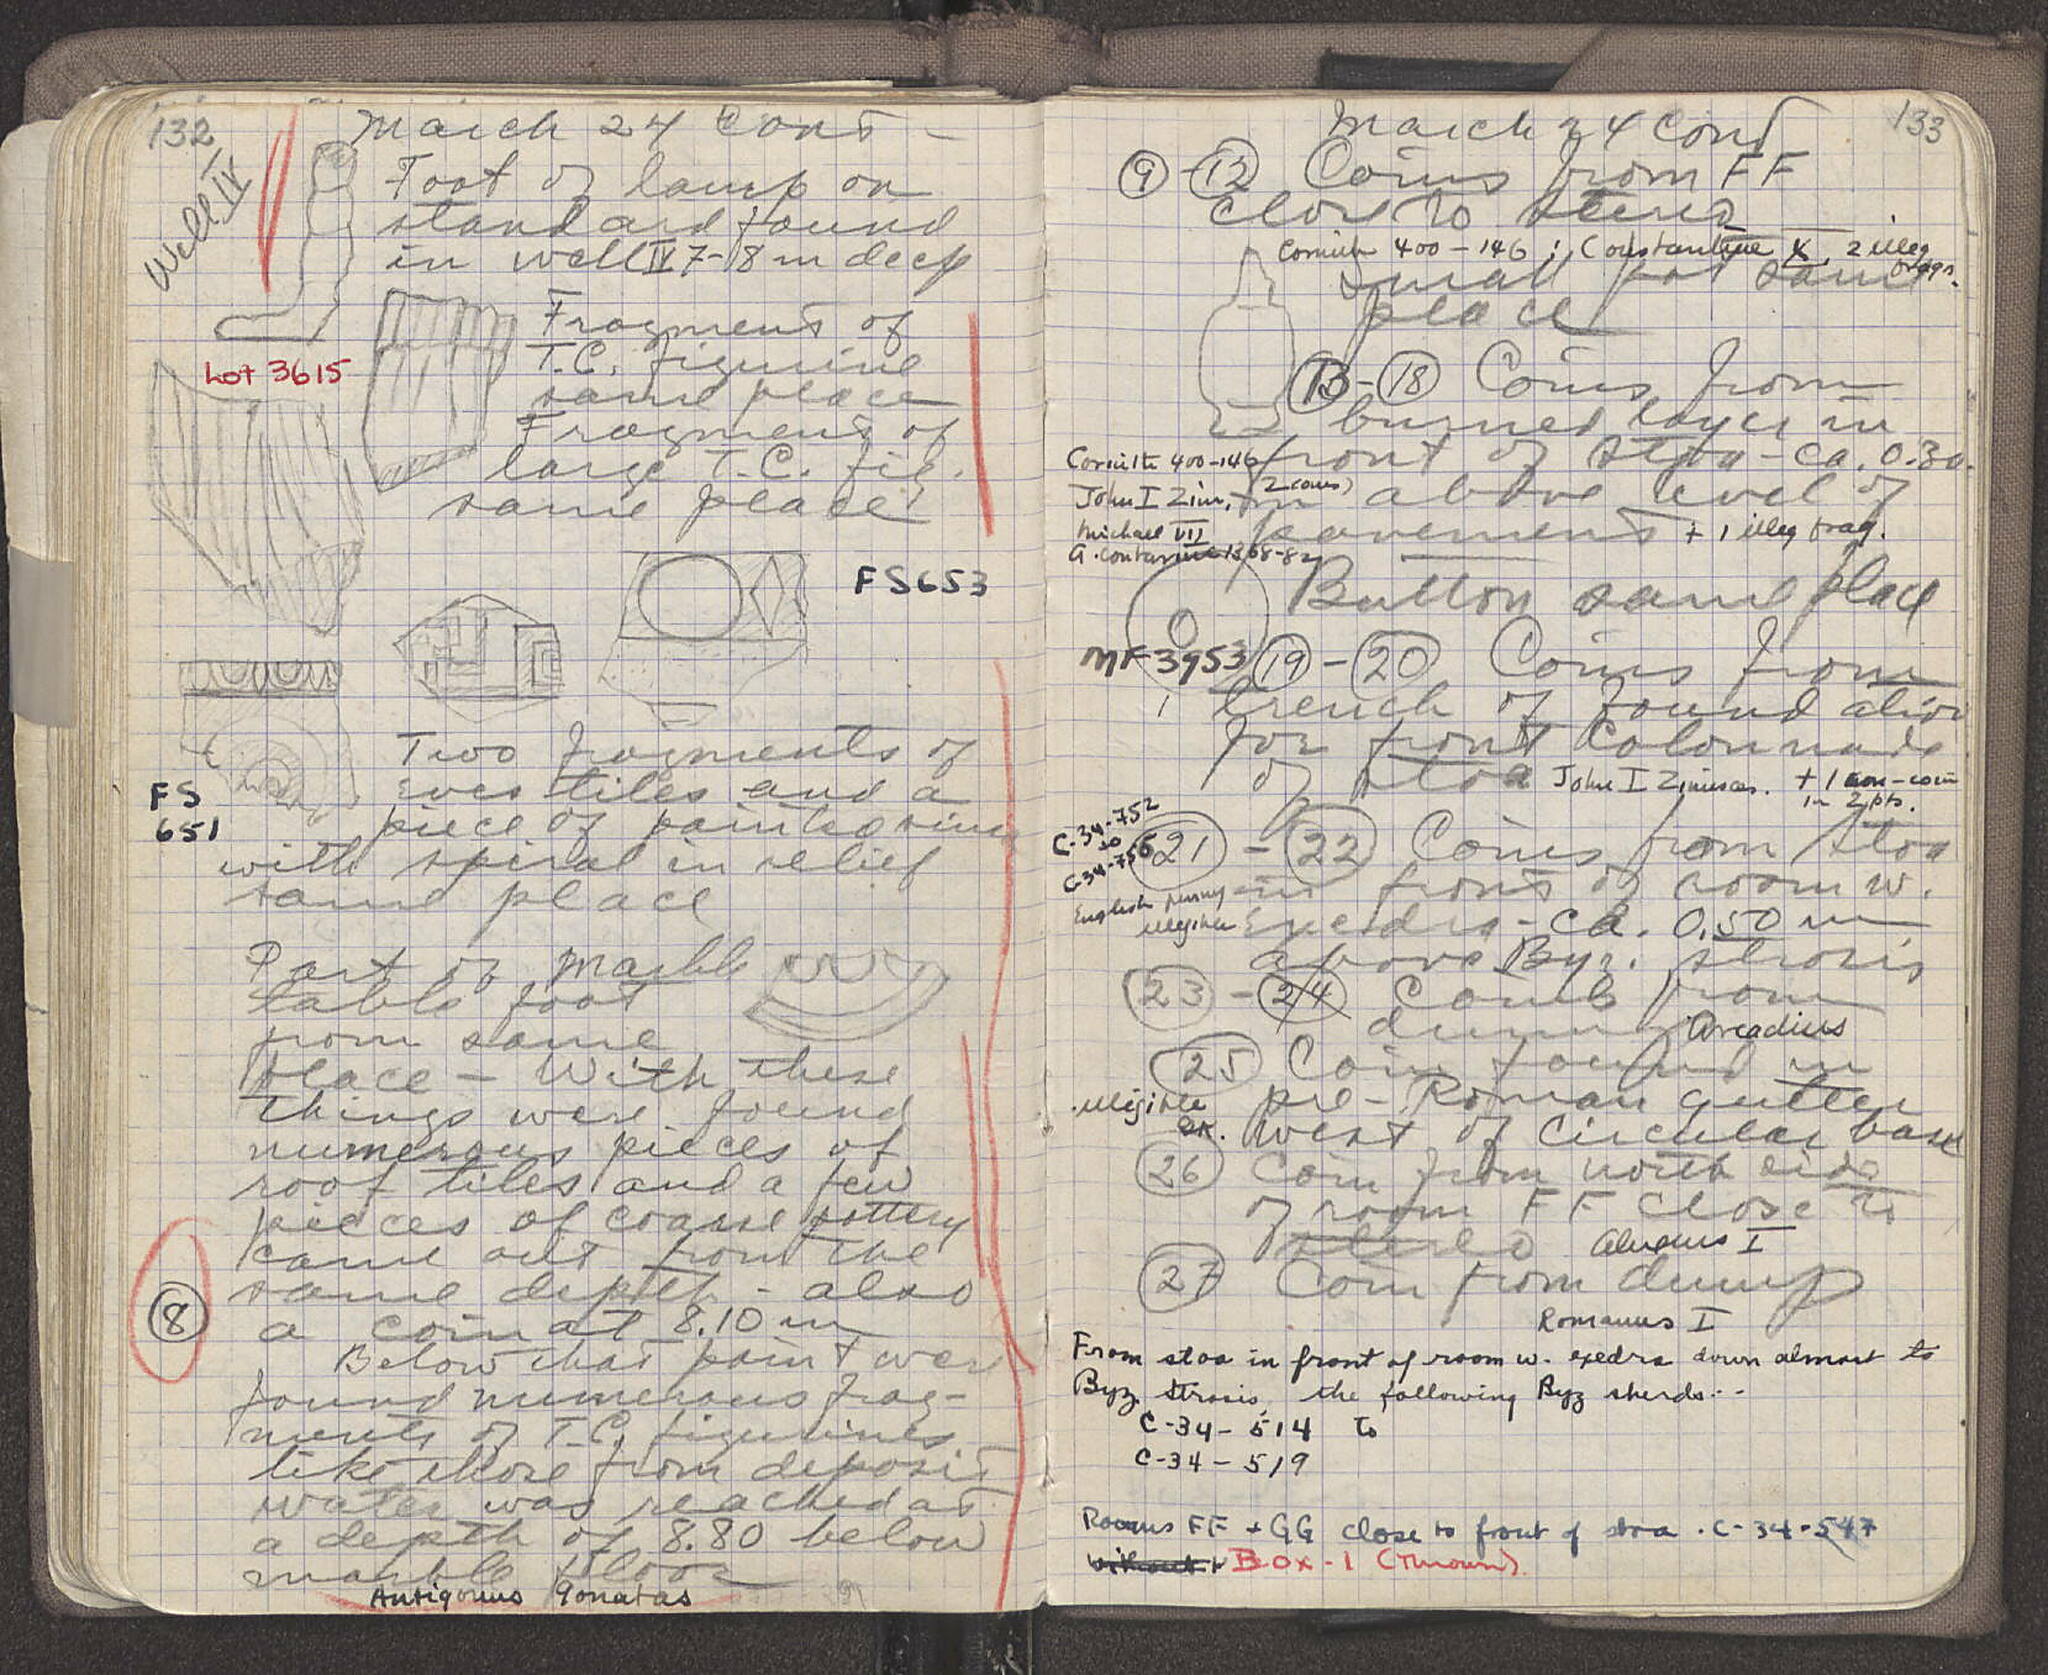 132
March 24 Cont -
Well IV
Foot of lamp on
standard found
in well IV 7-8 m deep
Fragments of
T.C. figurine
same place
Lot 3615
Fragment of
large T.C. fig.
same place
FS653
Two fragments of
eves tiles and a
piece of painted sima
FS
651
with spiral in relief
same place
Part of marble
table foot
from same
place - With these
things were found
numerous pieces of
roof tiles and a few
pieces of coarse pottery
came out from the
same depth - also
8
a coin at 8.10 m
Below that point were
found numerous frag-
ments of T.C. figurines
like those from deposit
water was reached at
a depth of 8.80 below
marble floor
Antigonus Gonatas
133
March 24 Cont
9 - 12 Coins from FF
close to stereo
Corinth 400-146; Constantine X, 2 illeg
frags.
small pot same
place
13 - 18 Coins from
burned layer in
front of stoa - ca. 0.30
m above level of
pavement + 1 illeg frag.
Corinth 400-146
(2 coins)
John I Zim.
Michael VII
A. Contarini 1368-82
Button same place
MF 3953
19 - 20 Coins from
trench of foundation
for front Colonnade
of stoa John I Zimisces. + 1 non-coin
in 2 pts.
C-34-752
to
C-34-756
21 - 22 Coins from stoa
in front of room w.
Exedra - ca. 0.50 m
above Byz. strosis
English penny
illegible
23 - 24 Coins from
dump Arcadius
25 Coin found in
pre-Roman gutter
west of circular base
illegible
Gk.
26 Coin from north side
of room FF close to
stereo Alexius I
27 Coin from dump
Romanus I
From stoa in front of room w. exedra down almost to
Byz. strosis, the following Byz sherds --
C-34-514 to
C-34-519
Rooms FF + GG close to front of stoa. C-34-547
Box-1 (Thrown)